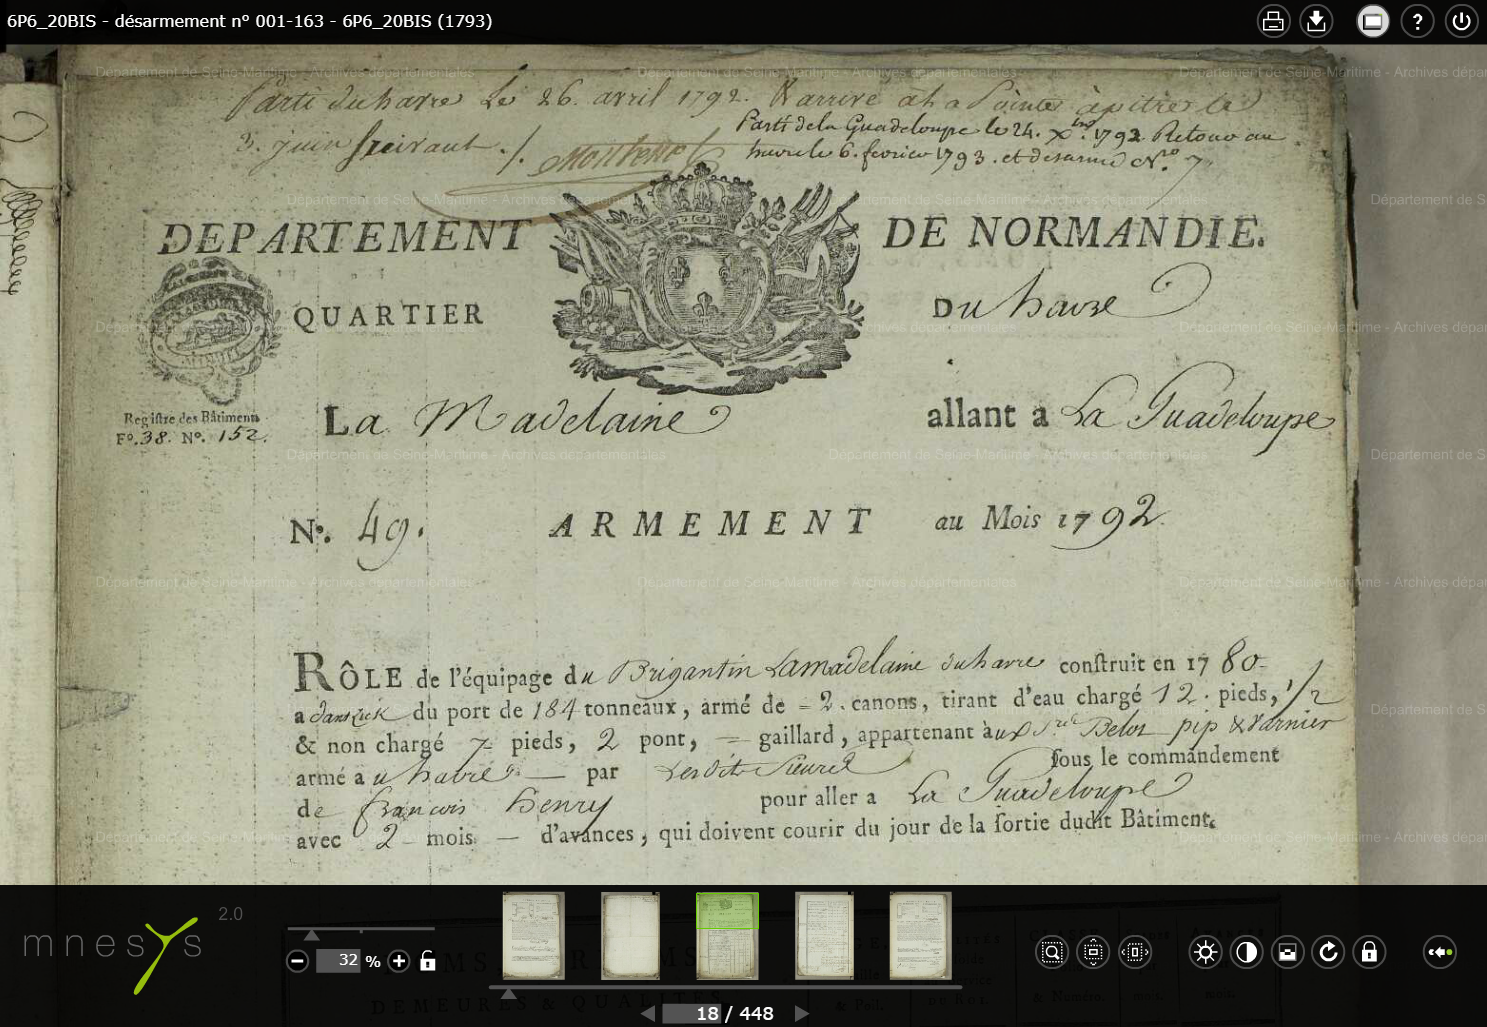 6P6_20BIS - désarmement n° 001-163 - 6P6_20BIS (1793)
Département de Seine-Maritime - Archives départementales
Parti du havre Le 26. avril 1792. & arrivé à la Pointe à pitre le
3. juin suivant ./.
Parti de la Guadeloupe le 24. Xbre. 1792. Retour au
havre le 6. fevrier 1793. et desarmé No. 7.
DEPARTEMENT DE NORMANDIE.
QUARTIER Du havre
Registre des Bâtiments
Fo. 38. No. 152.
La Madelaine allant a La Guadeloupe
No. 49. ARMEMENT au Mois 1792.
RÔLE de l'équipage du Brigantin Lamadelaine du havre construit en 1780
a dantzick du port de 184 tonneaux, armé de = 2. canons, tirant d'eau chargé 12. pieds, 1/2
& non chargé 7 pieds, 2 pont, = gaillard, appartenant àux Srs Belot pip & varnier
armé a u havre — par Lesdits Sieurs sous le commandement
de francois henry pour aller a La Guadeloupe
avec 2 mois — d'avances, qui doivent courir du jour de la sortie dudit Bâtiment.
mnesys 2.0
32 %
18 / 448